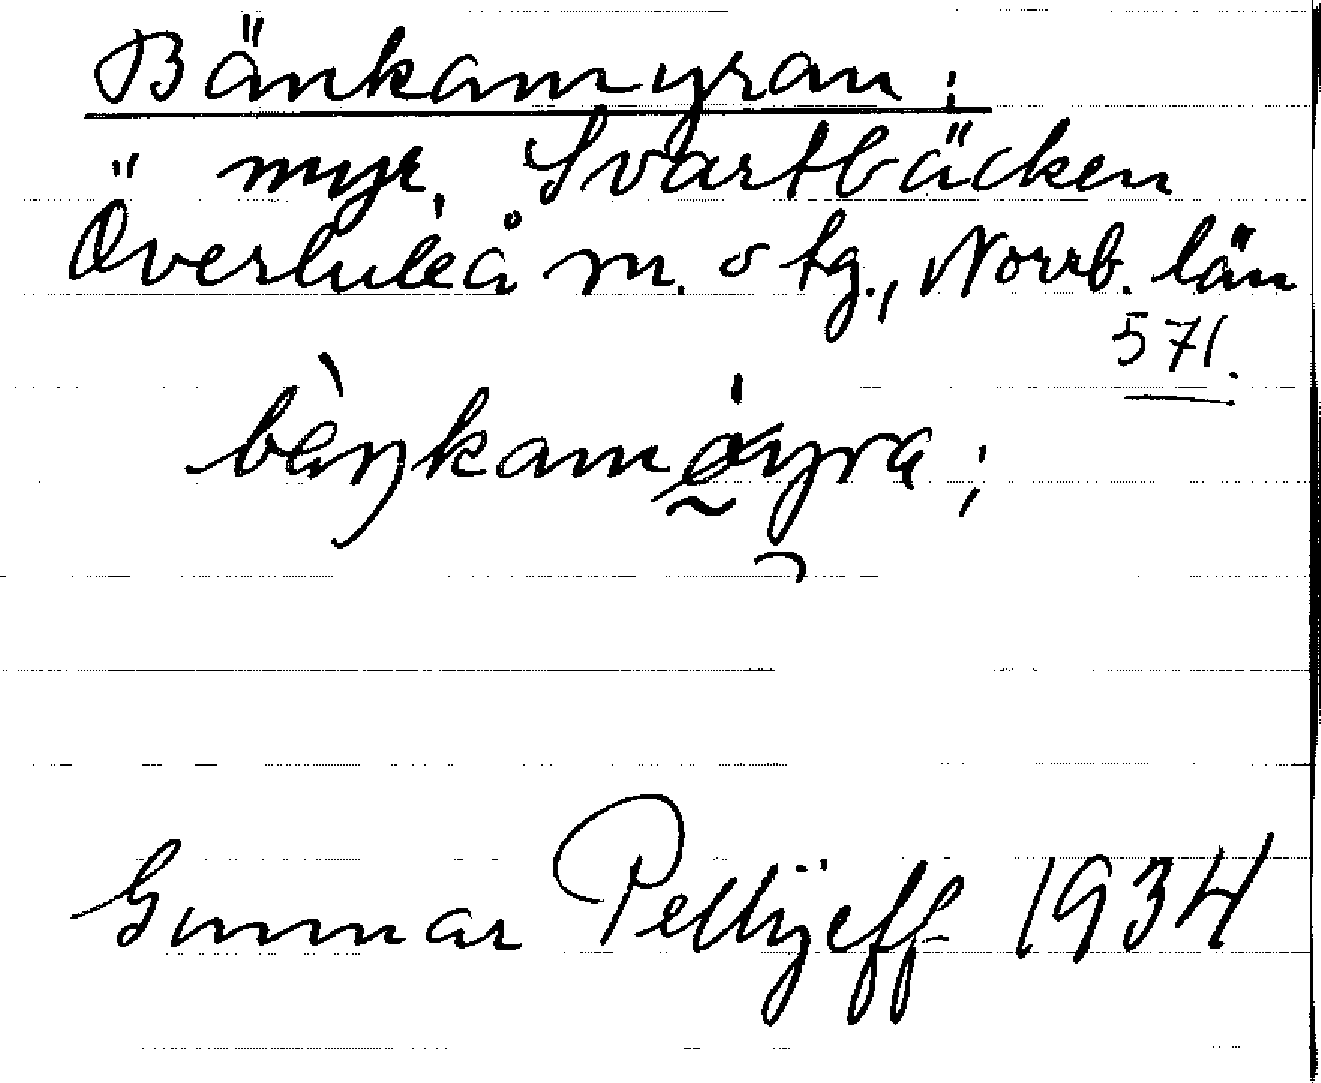 Bänkamyran;
myr, Svartbäcken
Överluleå m. o tg., Norrb. län
571.
Gunnar Pellijeff 1934